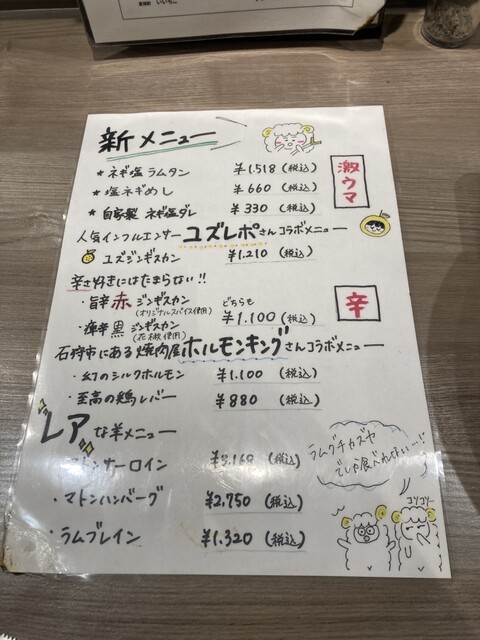 いいちこ
新メニュー
★ ネギ塩ラムタン ¥1.518(税込)
★ 塩ネギめし ¥660(税込)
★ 自家製 ネギ塩ダレ ¥330(税込)
激ウマ
人気インフルエンサー ユズレポさんコラボメニュー
ユズジンギスカン ¥1.210(税込)
辛さ好きにはたまらない!!
・旨辛 赤 ジンギスカン
(オリジナルスパイス使用)
どちらも
¥1.100(税込)
辛
黒 ジンギスカン
(花椒使用)
石狩市にある焼肉屋 ホルモンキングさんコラボメニュー
・幻のシルクホルモン ¥1.100(税込)
・至高の鶏レバー ¥880(税込)
レアな羊メニュー
ンサーロイン (税込)
・マトンハンバーグ ¥2,750(税込)
・ラムブレイン ¥1.320(税込)
ラムグチカズヤ
でしか食べれないー!!
コソコソー